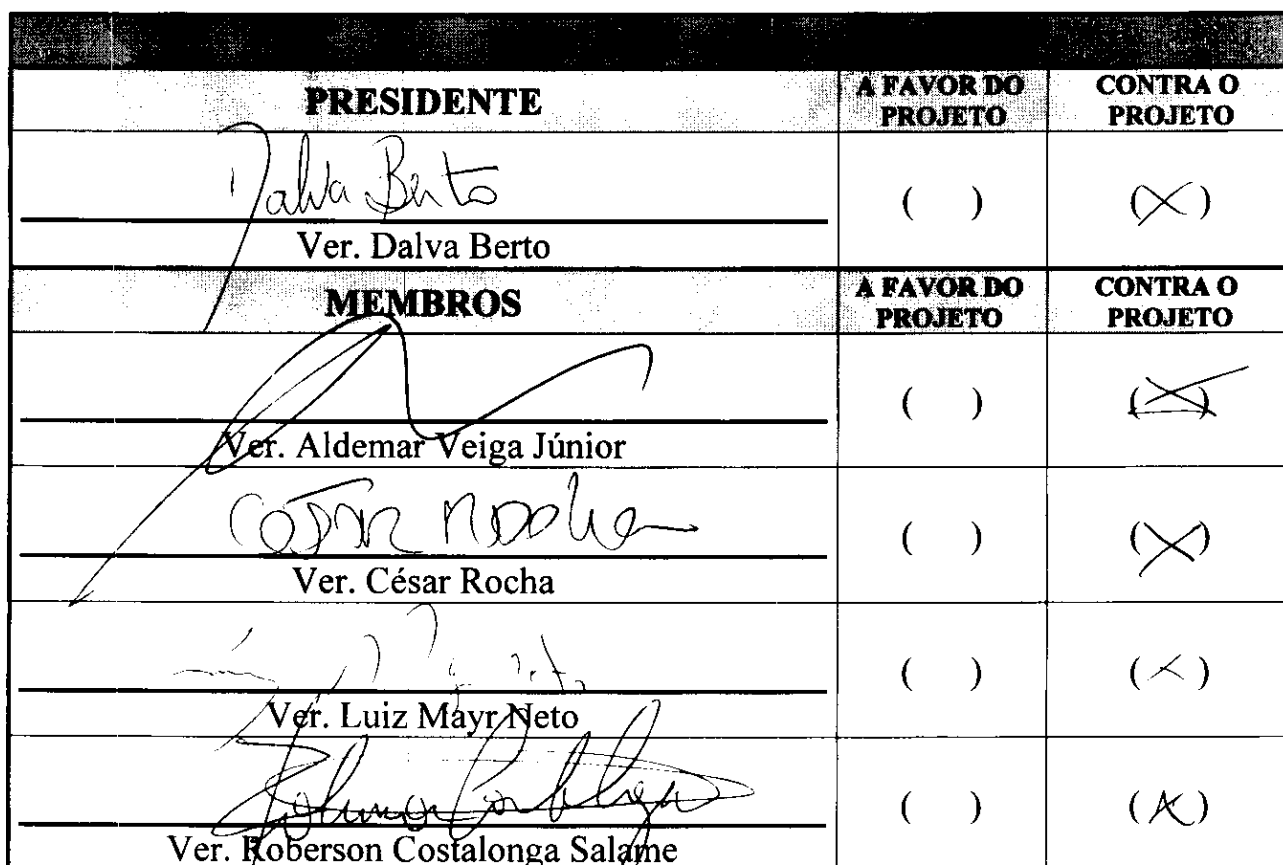 PRESIDENTE A FAVOR DO PROJETO CONTRA O PROJETO
Dalva Berto
( ) (X)
Ver. Dalva Berto
MEMBROS A FAVOR DO PROJETO CONTRA O PROJETO
( ) (X)
Ver. Aldemar Veiga Júnior
César Rocha
( ) (X)
Ver. César Rocha
( ) (X)
Ver. Luiz Mayr Neto
( ) (X)
Ver. Roberson Costalonga Salame